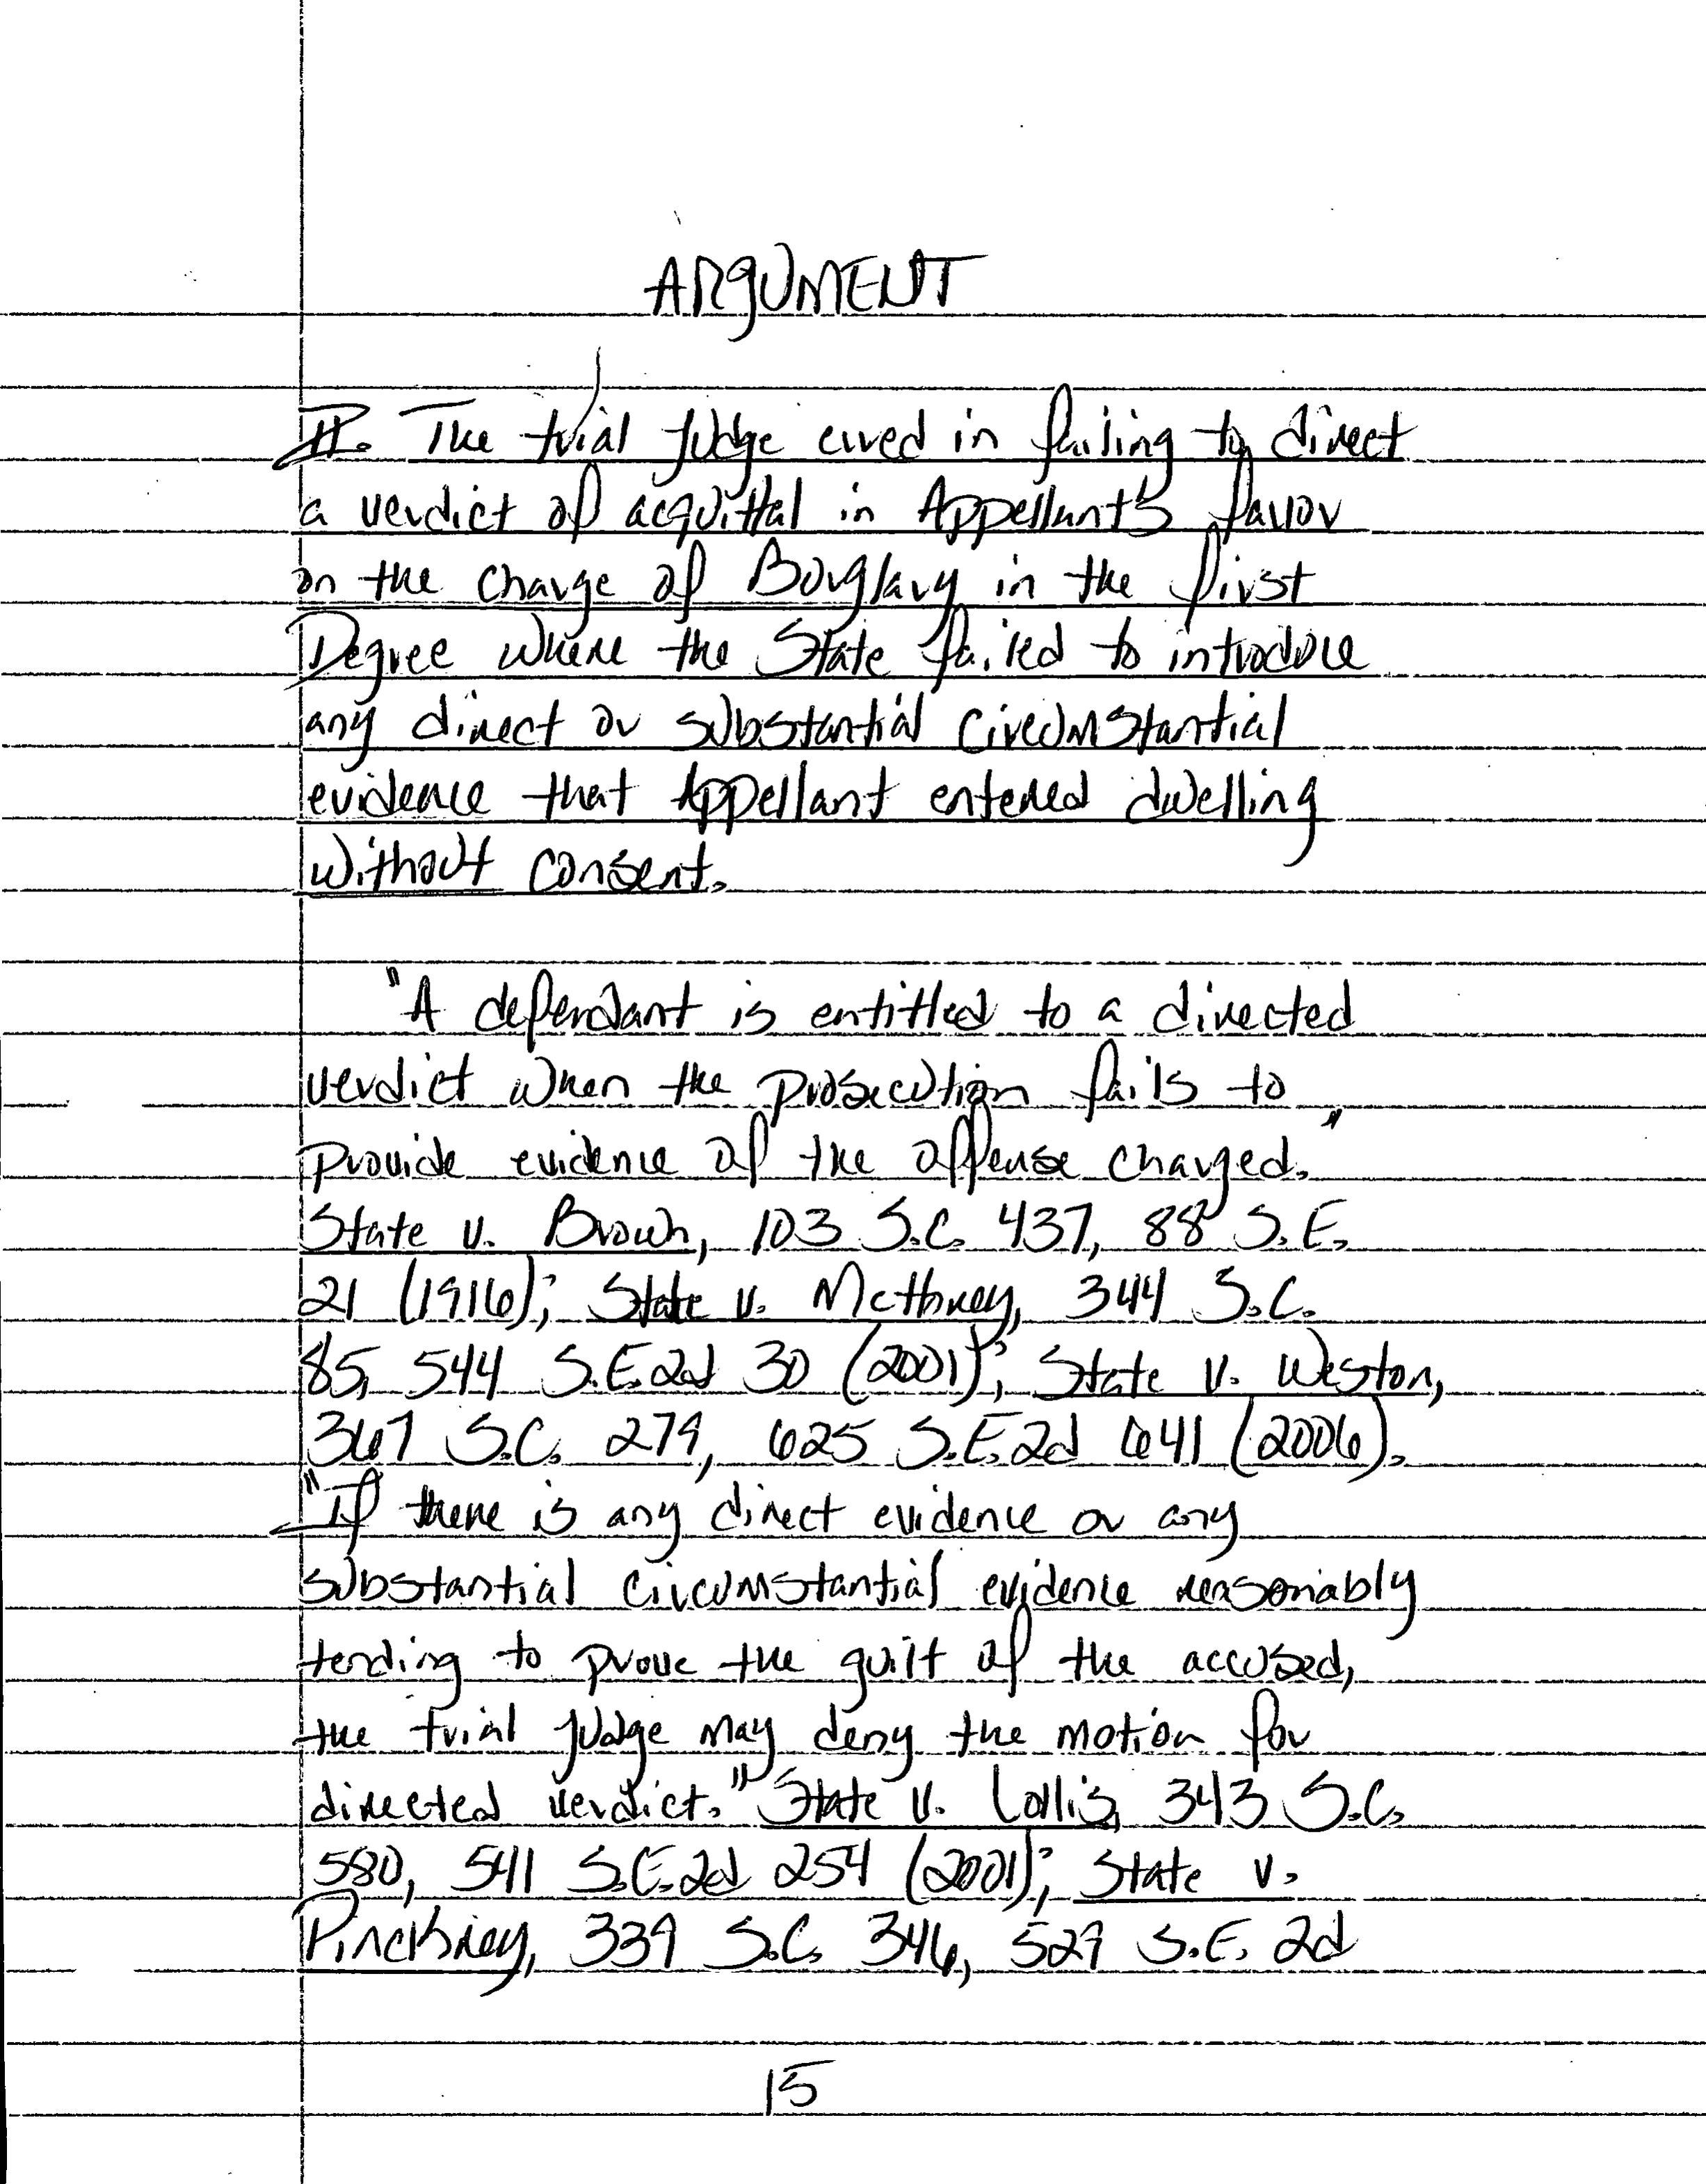 ARgUMENT
II. The trial Judge erred in failing to direct
a verdict of acquittal in Appellant's favor
on the charge of Burglary in the first
Degree where the State failed to introduce
any direct or substantial circumstantial
evidence that Appellant entered dwelling
without consent.
"A defendant is entitled to a directed
verdict when the prosecution fails to
provide evidence of the offense charged."
State v. Brown, 103 S.C. 437, 88 S.E.
21 (1916); State v. McHoney, 344 S.C.
85, 544 S.E.2d 30 (2001); State v. Weston,
367 S.C. 279, 625 S.E.2d 641 (2006).
"If there is any direct evidence or any
substantial circumstantial evidence reasonably
tending to prove the guilt of the accused,
the trial judge may deny the motion for
directed verdict." State v. Lollis, 343 S.C.
580, 541 S.E.2d 254 (2001); State v.
Pinckney, 339 S.C. 346, 529 S.E. 2d
15